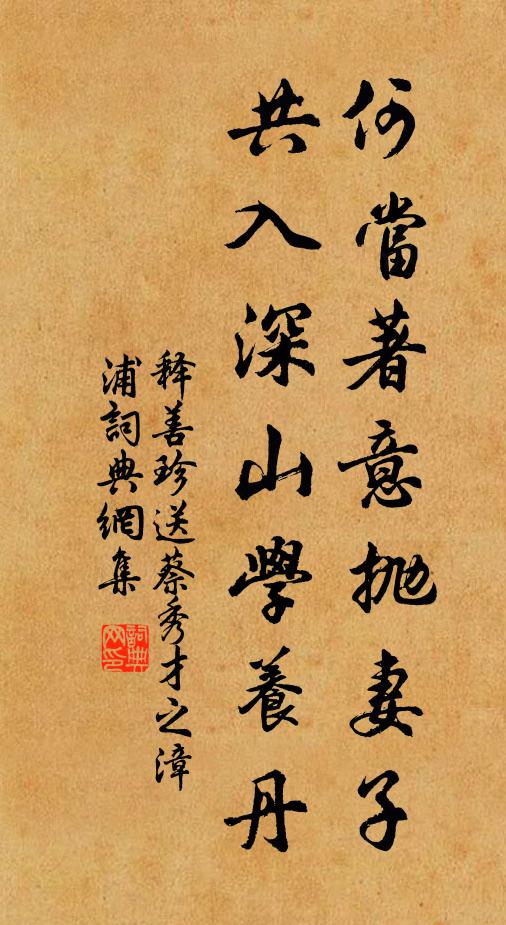 何當著意拋妻子
共入深山學養丹
释善珍送蔡秀才之漳
浦詞典網集
詞典
网印